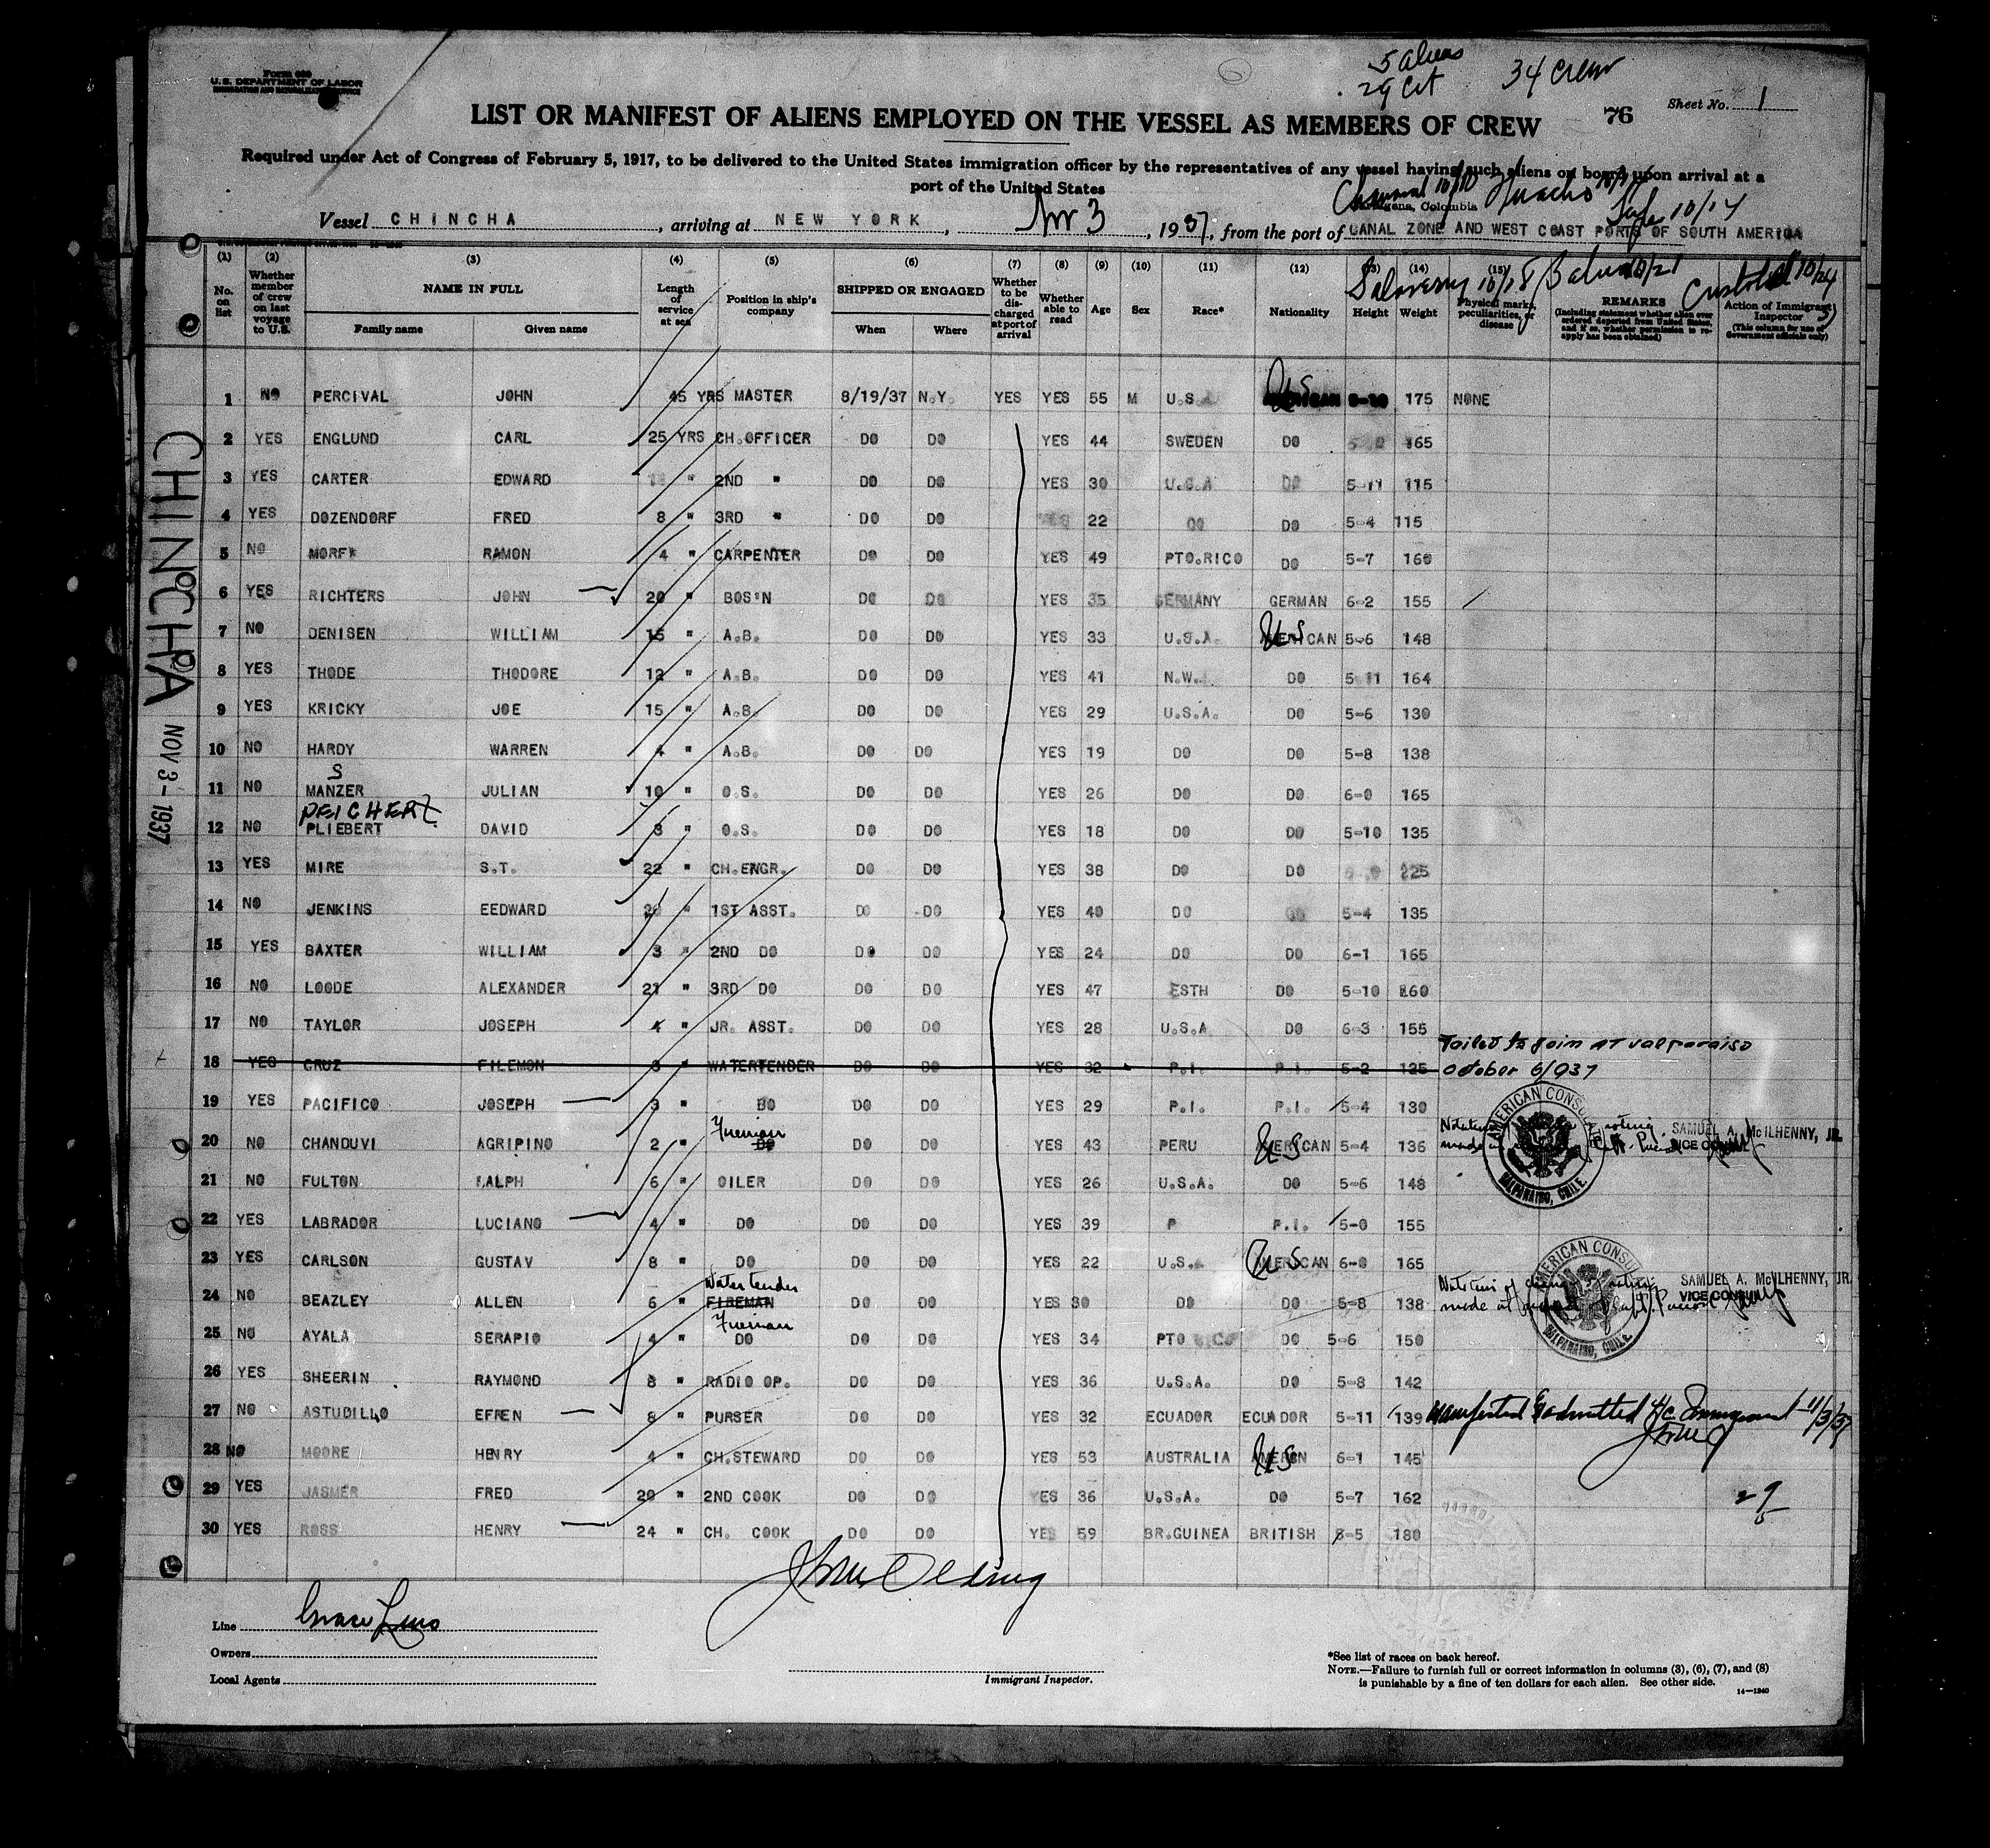 Form 680
U.S. DEPARTMENT OF LABOR
IMMIGRATION AND NATURALIZATION SERVICE
5 aliens
29 Cit
34 crew
76
Sheet No. 1
LIST OR MANIFEST OF ALIENS EMPLOYED ON THE VESSEL AS MEMBERS OF CREW
Required under Act of Congress of February 5, 1917, to be delivered to the United States immigration officer by the representatives of any vessel having such aliens on board upon arrival at a
port of the United States
Vessel CHINCHA, arriving at NEW YORK, Nov 3, 1937, from the port of CANAL ZONE AND WEST COAST PORTS OF SOUTH AMERICA
Colombia Huacho
10/14
Salaverry Balboa 10/21 Cristobal 10/24
(1) (2) (3) (4) (5) (6) (7) (8) (9) (10) (11) (12) (13) (14) (15)
No. on list
Whether member of crew on last voyage to U.S.
NAME IN FULL
Family name Given name
Length of service at sea
Position in ship's company
SHIPPED OR ENGAGED
When Where
Whether to be discharged at port of arrival
Whether able to read
Age
Sex
Race*
Nationality
Height
Weight
Physical marks, peculiarities, or disease
REMARKS
(Including statement whether alien ever ordered deported from United States, and if so, whether permission to reapply has been obtained)
Action of Immigrant Inspector
(This column for use of Government officials only)
1 NO PERCIVAL JOHN 45 YRS MASTER 8/19/37 N.Y. YES YES 55 M U.S. US 175 NONE
2 YES ENGLUND CARL 25 YRS CH.OFFICER DO DO YES 44 SWEDEN DO 165
3 YES CARTER EDWARD " 2ND " DO DO YES 30 U.S.A DO 5-11 115
4 YES DOZENDORF FRED 8 " 3RD " DO DO YES 22 DO DO 5-4 115
5 NO RAMON 4 " CARPENTER DO DO YES 49 PTO.RICO DO 5-7 160
6 YES RICHTERS JOHN 20 " BOS'N DO DO YES 35 GERMANY GERMAN 6-2 155
7 NO DENISEN WILLIAM 15 " A.B. DO DO YES 33 U.S.A. US AMERICAN 5-6 148
8 YES THODE THODORE 12 " A.B. DO DO YES 41 N.W. DO 5-11 164
9 YES KRICKY JOE 15 " A.B. DO DO YES 29 U.S.A. DO 5-6 130
10 NO HARDY WARREN 4 " A.B. DO DO YES 19 DO DO 5-8 138
S
11 NO MANZER JULIAN 10 " O.S. DO DO YES 26 DO DO 6-0 165
PEICHERT
12 NO PLIEBERT DAVID 3 " O.S. DO DO YES 18 DO DO 5-10 135
13 YES MIRE S.T. 22 " CH.ENGR. DO DO YES 38 DO DO 225
14 NO JENKINS EEDWARD 20 " 1ST ASST. DO DO YES 40 DO DO 5-4 135
15 YES BAXTER WILLIAM 3 " 2ND DO DO DO YES 24 DO DO 6-1 165
16 NO LOODE ALEXANDER 21 " 3RD DO DO DO YES 47 ESTH DO 5-10 160
17 NO TAYLOR JOSEPH 4 " JR. ASST. DO DO YES 28 U.S.A DO 6-3 155
Failed to join at Valparaiso
18 YES CRUZ FILEMON 3 " WATERTENDER DO DO YES 32 P.I. P.I. 5-2 125 October 6/937
19 YES PACIFICO JOSEPH 3 " DO DO DO YES 29 P.I. P.I. 5-4 130
Fireman
20 NO CHANDUVI AGRIPINO 2 " DO DO DO YES 43 PERU US AMERICAN 5-4 136
AMERICAN CONSUL VALPARAISO, CHILE. SAMUEL A. McILHENNY, JR. VICE CONSUL
21 NO FULTON RALPH 6 " OILER DO DO YES 26 U.S.A. DO 5-6 148
22 YES LABRADOR LUCIANO 4 " DO DO DO YES 39 P P.I. 5-0 155
23 YES CARLSON GUSTAV 8 " DO DO DO YES 22 U.S. US AMERICAN 6-0 165
Watertender
24 NO BEAZLEY ALLEN 6 " FIREMAN DO DO YES 30 DO DO 5-8 138
AMERICAN CONSUL VALPARAISO, CHILE. SAMUEL A. McILHENNY, JR. VICE CONSUL
Fireman
25 NO AYALA SERAPIO 4 " DO DO DO YES 34 PTO RICO DO 5-6 150
26 YES SHEERIN RAYMOND 8 " RADIO OP. DO DO YES 36 U.S.A. DO 5-8 142
27 NO ASTUDILLO EFREN 8 " PURSER DO DO YES 32 ECUADOR ECUADOR 5-11 139 Manifested & admitted 11/3/37
28 NO MOORE HENRY 4 " CH.STEWARD DO DO YES 53 AUSTRALIA US 6-1 145
29 YES JASMER FRED 20 " 2ND COOK DO DO YES 36 U.S.A. DO 5-7 162 29
30 YES ROSS HENRY 24 " CH. COOK DO DO YES 59 BR.GUINEA BRITISH 5-5 180
CHINCHA NOV 3-1937
Line Grace Line
Owners
Local Agents
Immigrant Inspector.
*See list of races on back hereof.
NOTE.—Failure to furnish full or correct information in columns (3), (6), (7), and (8)
is punishable by a fine of ten dollars for each alien. See other side.
14—1240